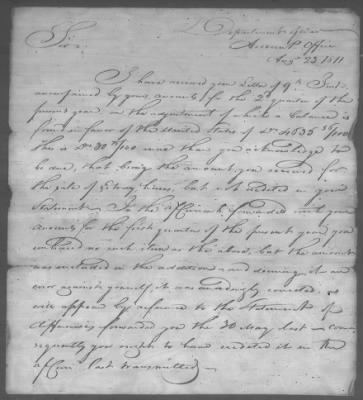 Department of War
Sir,
Accou't Office
Aug't 23. 1811
I have received your Letter of 9th Inst.
accompanied by your accounts for the 2d quarter of the
present year on the adjustment of which a balance is
found in favor of the United States of Dr 4535
this is Dr 30 /100 more than you acknowledge to
be due, that being the amount you received for
the sale of Horses, but not credited in your
Statement. In the forwarded with your
accounts for the first quarter of the present year you
no such item as the above, but the amount
was included in the additions and deeming it an
error against yourself, it was accordingly corrected, as
will appear by reference to the Statement of
differences forwarded you the 30 May last - conse
quently you ought to have credited it in the
a/Curr't last transmitted -